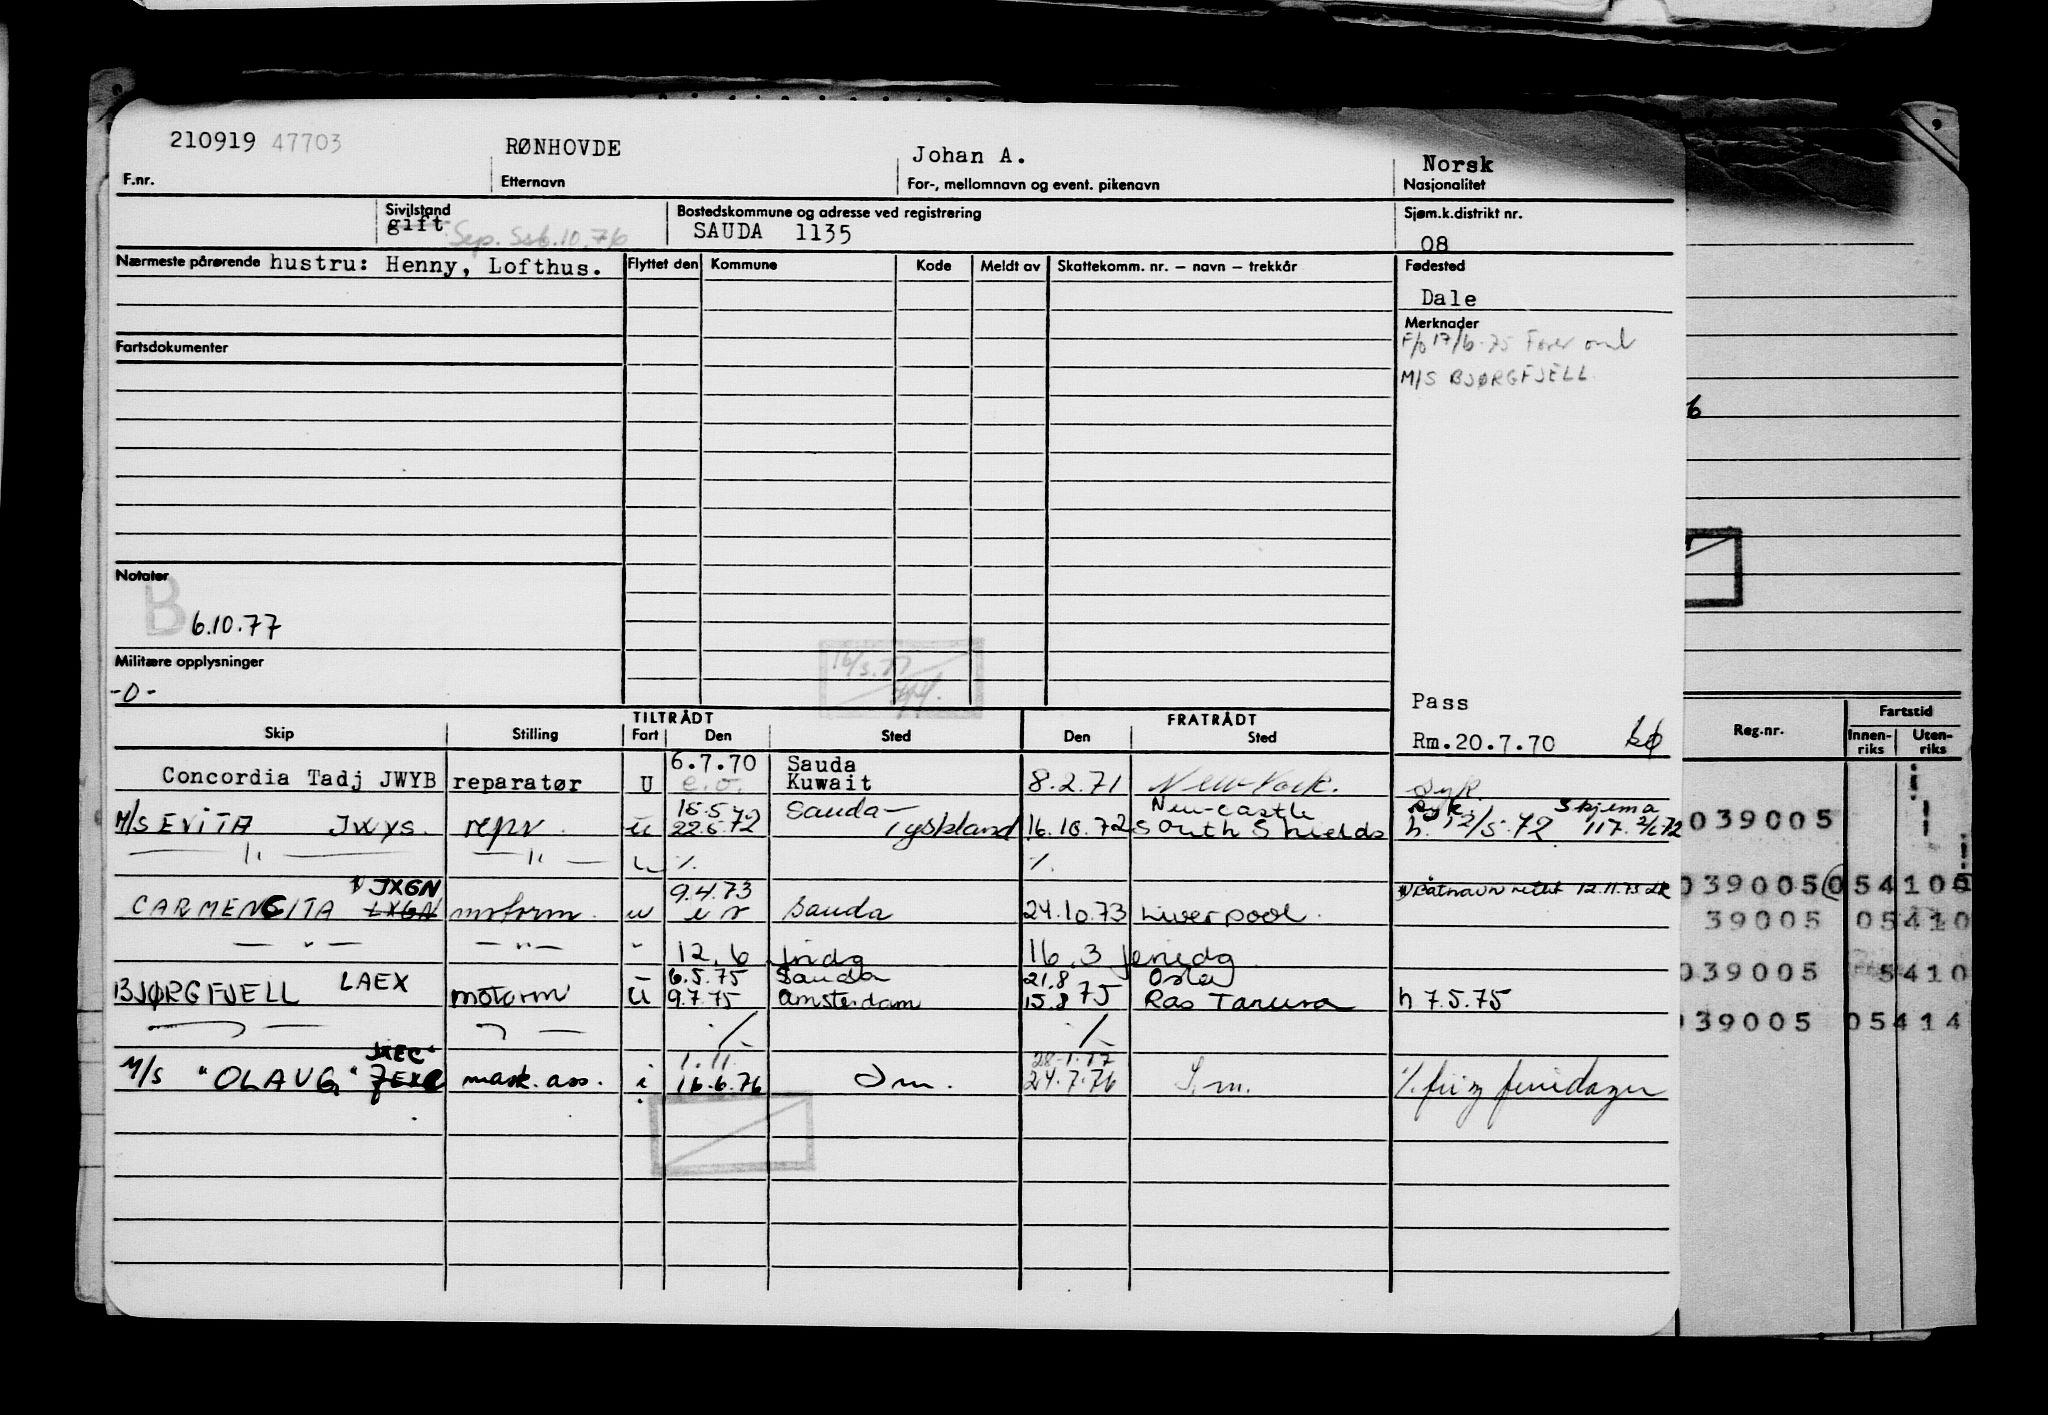 210919 47703 RØNHOVDE Johan A. Norsk
F.nr. Etternavn For-, mellomnavn og event. pikenavn Nasjonalitet
Sivilstand Bostedskommune og adresse ved registrering Sjøm.k.distrikt nr.
gift Sep. 6.10.76 SAUDA 1135 08
Nærmeste pårørende hustru: Henny, Lofthus. Flyttet den Kommune Kode Meldt av Skattekomm. nr. – navn – trekkår Fødested
Dale
Merknader
F/o 17/6-75
M/S BJØRGFJELL.
Fartsdokumenter
6
Notater
B 6.10.77
Militære opplysninger
-0-
16/5.77
Pass
Rm.20.7.70
TILTRÅDT FRATRÅDT
Skip Stilling Fart Den Sted Den Sted
Reg.nr. Fartstid
Innen-riks Uten-riks
6.7.70 Sauda
Concordia Tadj JWYB reparatør U e.o. Kuwait 8.2.71 New York. syk.
15.5 Sauda— New-castle syk Skjema
M/S EVITA JWYS. repr. u 22.5.72 Tyskland 16.10.72 South Shields h. 12/5.72 117. 2/6 72
039005
— " — — " — u ·/. ·/.
JXGN 9.4.73 1) Båtnavn rettet 12.11.73
039005 054100
CARMENCITA LXGN motorm. u Sauda 24.10.73 Liverpool.
39005 05410
— " — — " — " 12.6 16.3
6.5.75 Sauda 21.8 Oslo
039005 5410
BJØRGFJELL LAEX motorm u 9.7.75 Amsterdam 15.8 75 Ras Tanura h 7.5.75
— " — — " — ·/. ·/.
039005 05414
JXEC 1.11. 28.1.77
M/S "OLAUG" mask. ass. i 16.6.76 Jm. 24.7.76 J.m. ·/. fri og feriedager